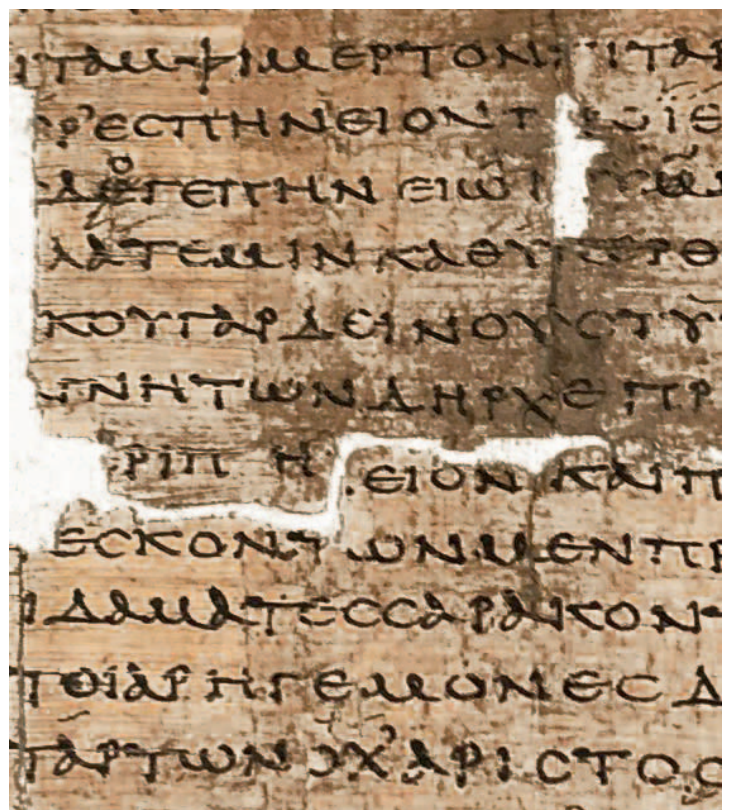 ΙΤΑΜΦΙΜΕΡΤΟΝΤΙΤΑΡ
ΡʼΕСΠΗΝΕΙΟΝΠΡΟΪΕ
ΔΟΓΕΠΗΝΕΙΩΙ
ΛΑΤΕΜΙΝΚΑΘΥΠΕΡΘ
ΚΟΥΓΑΡΔΕΙΝΟΥСΤΥ
ΓΝΗΤΩΝΔΗΡΧΕΠΡ
ΡΙΠΗ ΕΙΟΝΚΑΙΠ
ΕСΚΟΝΤΩΝΜΕΝΠΡ
ΙΔΑΜΑΤΕССАΡΑΚΟΝ
ΤΟΙΑΡΗΓΕΜΟΝΕСΔ
ΤΑΡΤΩΝΟΧʼΑΡΙСΤΟС